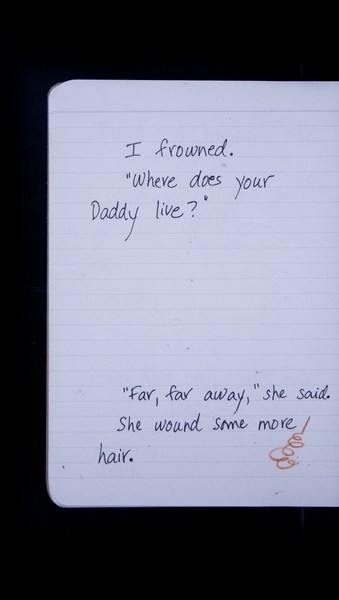 I frowned.
"Where does your
Daddy live?"
"Far, far away," she said.
She wound some more
hair.